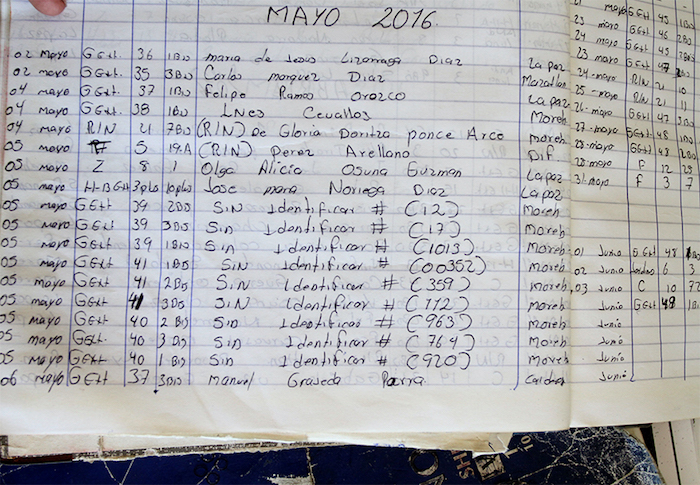 MAYO 2016.
02 mayo GEH. 36 1BD maria de Jesus Lizarraga Diaz La paz
02 mayo GEH. 35 3BD Carlos marquez Diaz Mazatlan
04 mayo GEH. 37 1BD Felipe Ramos Orozco La paz
04 mayo GEH. 38 1BD INes Cevallos Moreh
04 mayo R/N 21 7BD (R/N) De Gloria Doritza ponce Arce moreh
05 mayo 5 19A (R/N) Perez Arellano Dif
05 mayo Z 8 1 Olga Alicia Osuna Guzman La paz
05 mayo H-BGH 3 Jose maria Noriega Diaz La paz
05 mayo GEH 39 2BD SiN Identificar # (12) Moreh
05 mayo GEH 39 3BD Sin Identificar # (17) Moreh
05 mayo GEH 39 1BD Sin Identificar # (1013) Moreh
05 mayo GEH 41 1BD SiN Identificar # (00352) moreh
05 mayo GEH 41 2BD SiN Identificar # (359) Moreh
05 mayo GEH 41 3BD SiN Identificar # (772) moreh
05 mayo GEH 40 2BD Sin Identificar # (963) moreh
05 mayo GEH. 40 3BD Sin Identificar # (764) moreh
05 mayo GEH 40 1BD Sin Identificar # (920) Moreh
06 mayo GEH 37 3BD manuel Parra
21 mayo GEH 45
23 mayo GEH 46
24 mayo GEH 45
23 mayo GEH 47
24-mayo R/N 10
25-mayo R/N 21 11
26-mayo GEH 47
27-mayo GEH 48
28-mayo GEH 48
28-mayo F 12 28
31-mayo F 3 7
01 Junio GEH 48
02 Junio 6
03 Junio C 10
Junio GEH 48
Junio
Junio
Junio
Junio